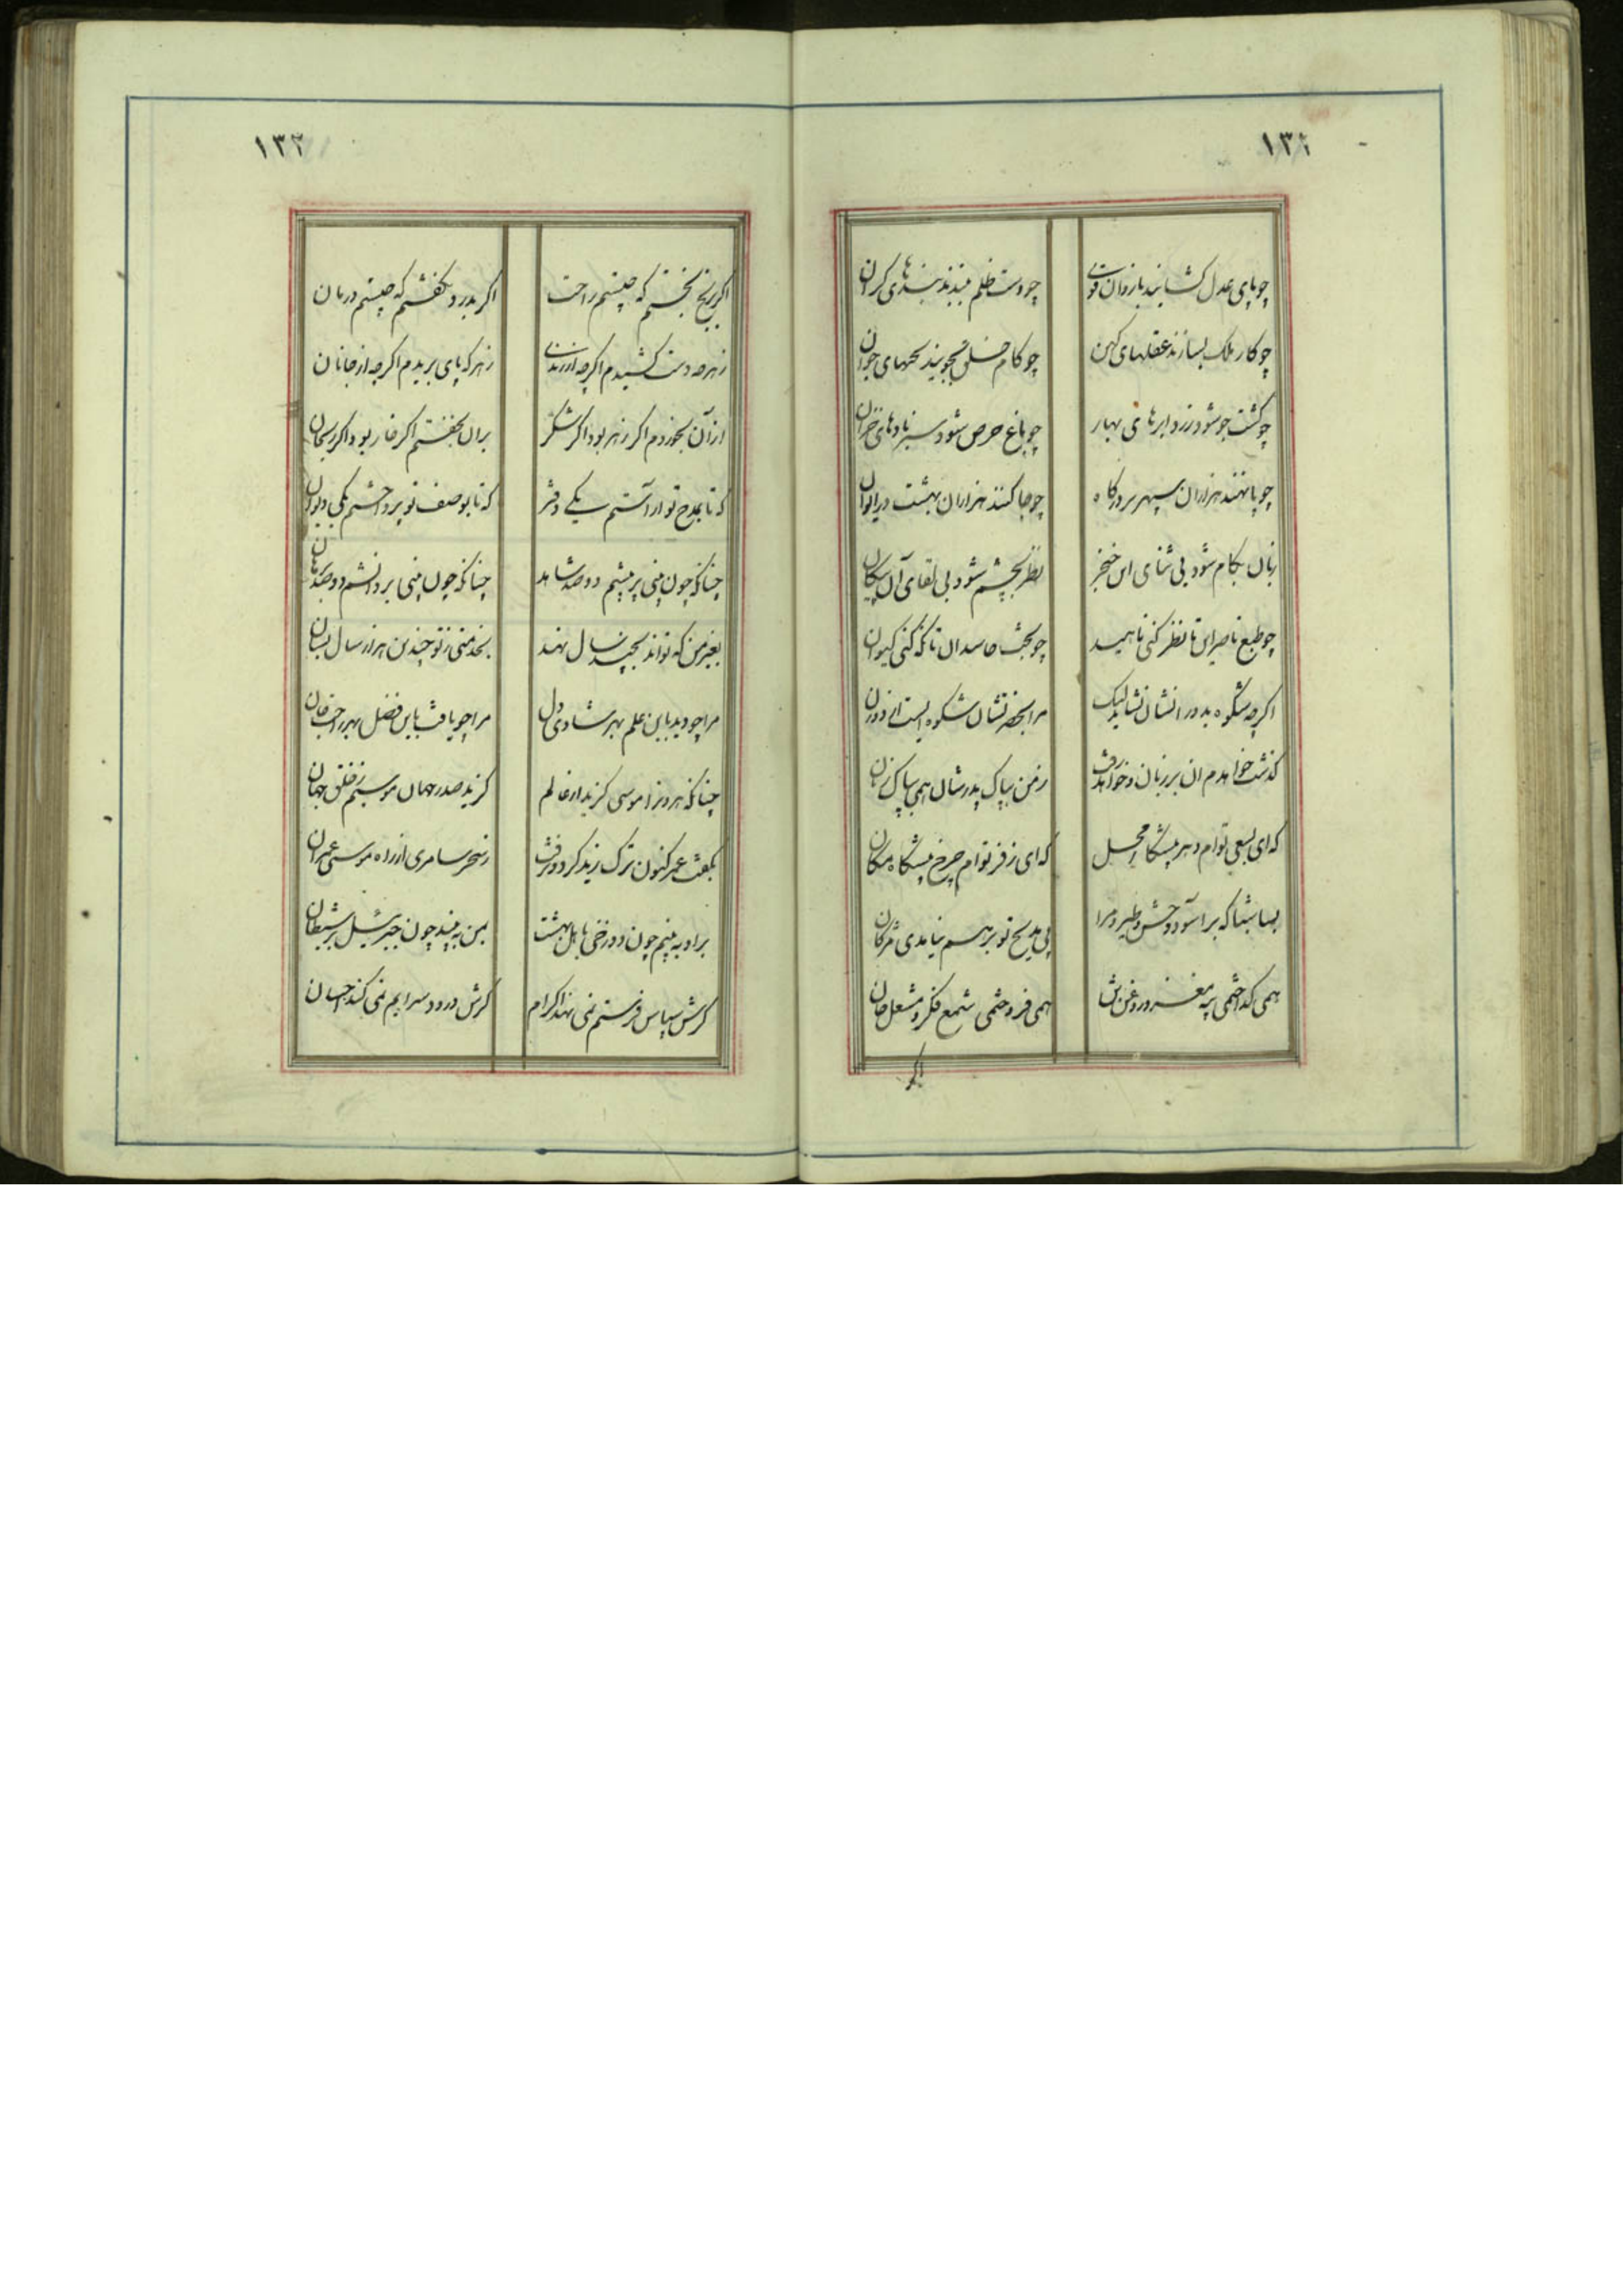 ١٣١
چو پای عدل کشایند بازوان قوت چو دست ظلم ببندند بندهای کران
چو کار ملک بسازند عقلهای کهن چو کام خلق بجویند بختهای جوان
چو کشت جو شود زرد ابرهای بهار چو باغ حرص شود سبز بادهای خزان
چو پا نهند هزاران سپهر بر درکاه چو جا کنند هزاران بهشت در ایوان
زبان بکام شود بی ثنای این خنجر نظر بچشم شود بی لقای آن پیکان
چو طبع ناصرایی تا نظر کنی ناهید چو بخت حاسدان تا که کنی کیوان
اکرچه شکوه بدور انشان نشاید لیک مرا بحضرتشان شکوه ایست از دوران
کذشت خواهدم ان بر زبان و خواهد رفت ز من بپاک پدرشان همی بپاک زبان
که ای بسعی توام دهر پیشکار محل که ای ز فر توام چرخ پیشکاه مکان
بسا شبا که بر آسود وحش و طیر و مرا پی مدیح تو بر هم نیامدی مژکان
همی کداختمی پیه مغز و روغن تن همی فروختمی شمع فکر و مشعل جان
اکر
١٣٢
اکر برنج نجستم که چیستم راحت اکر بدرد نکفتم که چیستم درمان
ز هر چه دست کشیدم اکرچه از زندی ز هر که پای بریدم اکرچه از جانان
از آن نخوردم اکر زهر بود اکر شکر بر ان نخفتم اکر خار بود اکر ریحان
که تا بمدح تو آراستم یکی دفتر که تا بوصف تو پرداختم یکی دیوان
چنانکه چون منی بر میشم دو صد شاهد چنانکه چون منی بر دانشم دو صد برهان
بغیر من که تواند بچند سال نهند بخدمتی ز تو چندین هزار سال بسان
مرا چو دید باین علم بهر شادی دل مرا چو یافت باین فضل بهر راحت جان
چنانکه هرون را موسی کزید از عالم کزید صدر جهان موسیم ز خلق جهان
بکفت عمر کنون ترک زید کرد و برفت ز سحر سامری از راه موسی عمران
بر او به بینم چون دوزخی باهل بهشت بمن به بیند چون جبرئیل بر شیطان
کرش سپاس فرستم نمی نهد اکرام کرش درود سرایم نمی کند احسان